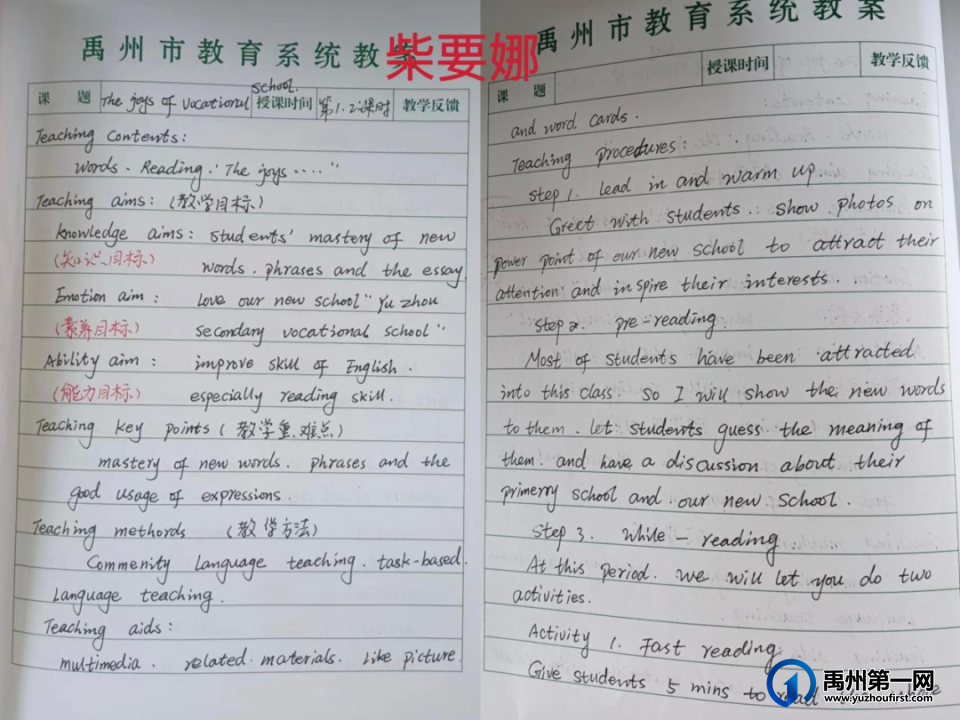 禹州市教育系统教案
柴要娜
课题 The joys of vocational school. 授课时间 第1.2课时 教学反馈
Teaching contents:
words. Reading: "The joys ...."
Teaching aims: (教学目标)
knowledge aims: students' mastery of new
(知识目标) words. phrases and the essay
Emotion aim: Love our new school "Yu zhou
(素养目标) secondary vocational school"
Ability aim: improve skill of English.
(能力目标) especially reading skill.
Teaching key points (教学重、难点)
mastery of new words. phrases and the
good usage of expressions.
Teaching methords (教学方法)
Commenity language teaching. task-based.
Language teaching.
Teaching aids:
multimedia. related materials. Like picture
禹州市教育系统教案
课题 授课时间 教学反馈
and word cards.
Teaching procedures:
Step 1. Lead in and warm up.
Greet with students. Show photos on
power point of our new school to attract their
attention and inspire their interests...
Step 2. pre-reading.
Most of students have been attracted
into this class. So I will show the new words
to them. Let students guess the meaning of
them. and have a discussion about their
primerry school and our new school.
Step 3. While - reading
At this period. We will let you do two
activities.
Activity 1. Fast reading
Give students 5 mins to read the
禹州第一网
www.yuzhoufirst.com